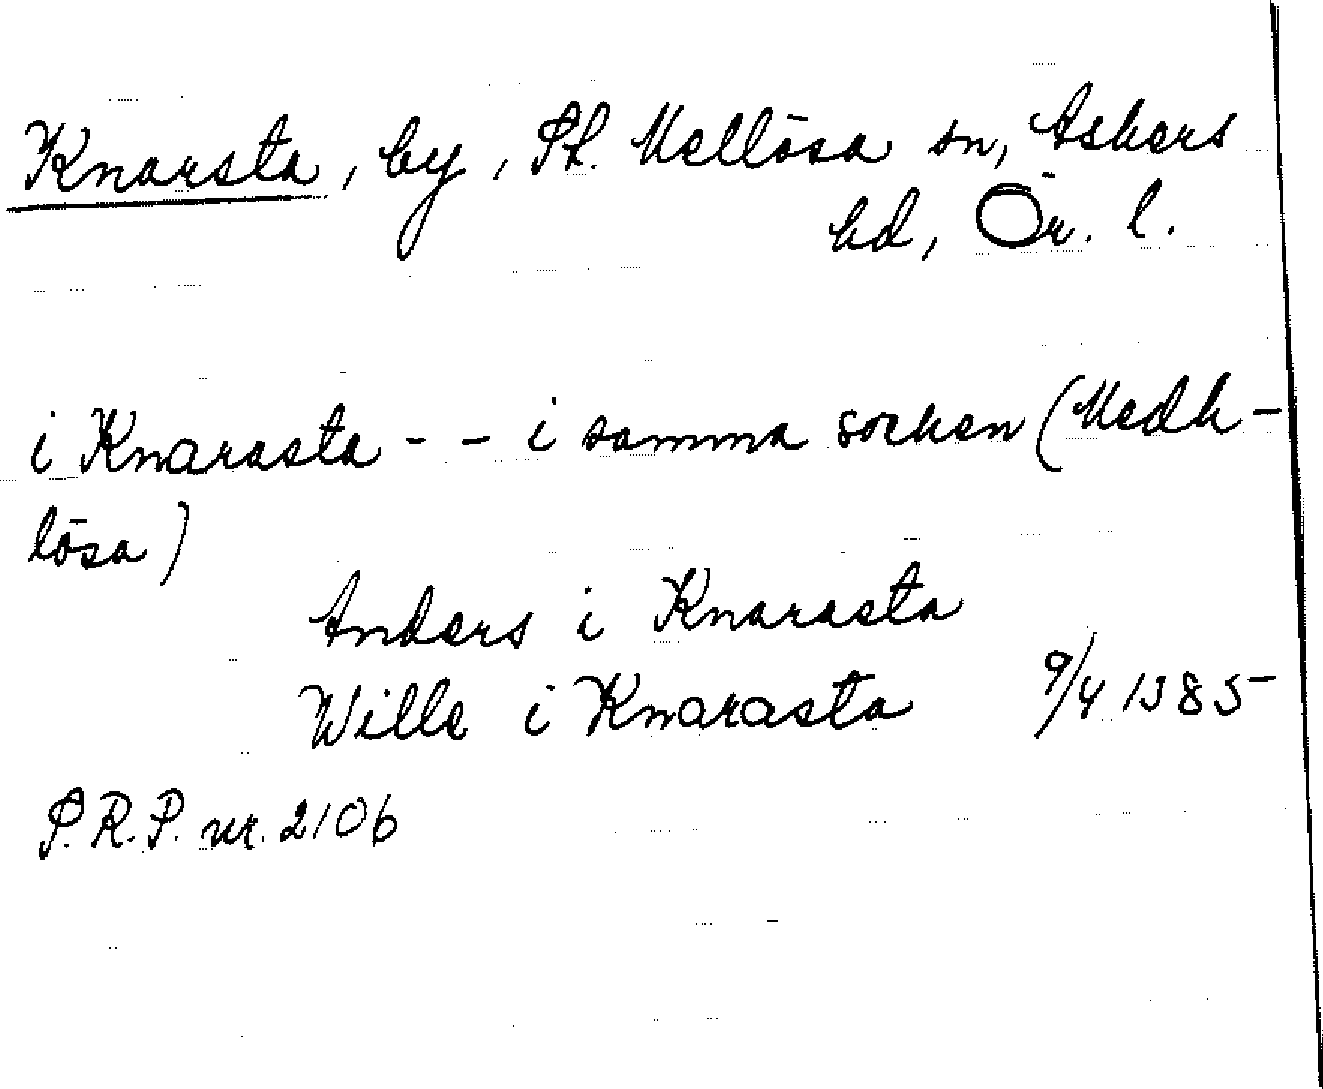 Knarsta, by, St. Mellösa sn, Askers
hd, Ör. l.
i Knarasta - - i samma socken (Medh-
lösa)
Anders i Knarasta
Wille i Knarasta 9/4 1385
P.R.P. nr. 2106